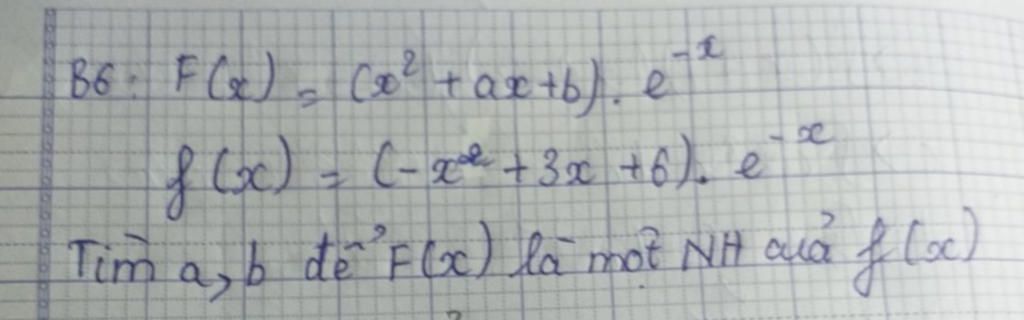 B6: F(x) = (x² + ax + b). e⁻ˣ
f(x) = (-x² + 3x + 6). e⁻ˣ
Tìm a, b để F(x) là một NH của f(x)